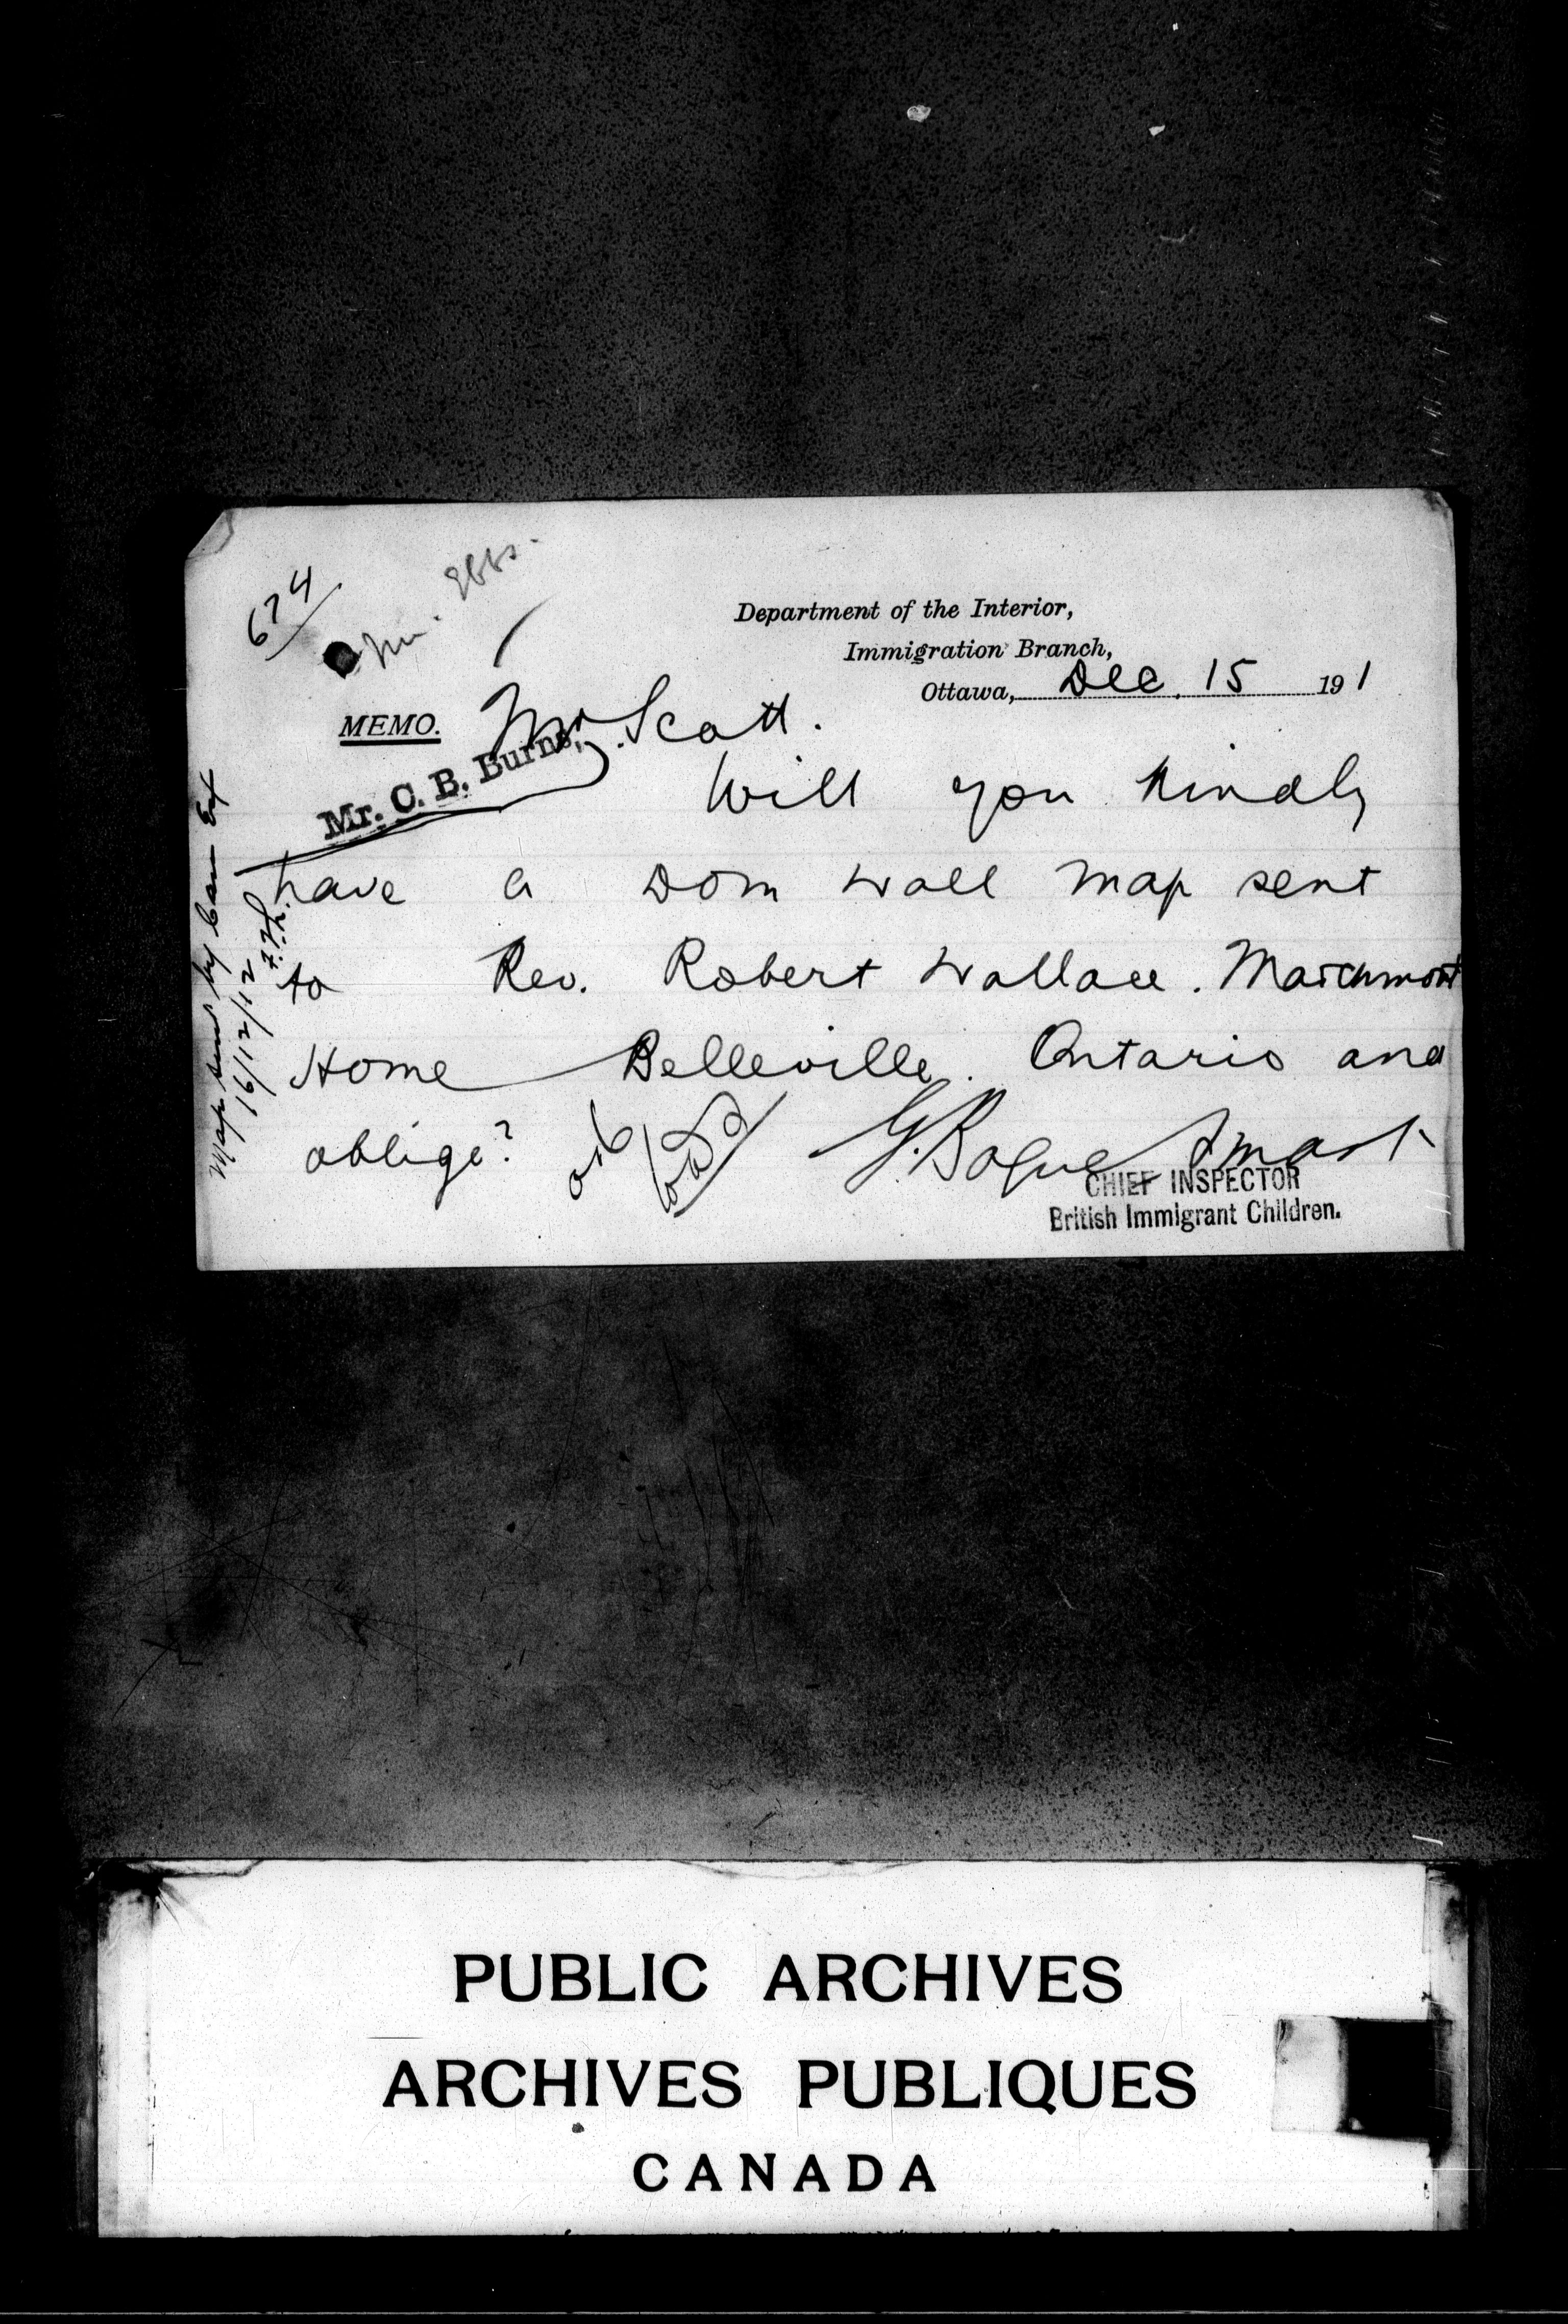 674
Mr. Ebbs.
Department of the Interior,
Immigration Branch,
Ottawa, Dec. 15 191
MEMO. Mr Scott.
Mr. C. B. Burns,
Will you kindly
have a Dom wall map sent
to Rev. Robert Wallace. Marchmont
Home Belleville. Ontario and
oblige?
G. Bogue Smart
CHIEF INSPECTOR
British Immigrant Children.
Map sent by Can Ex
16/12/12
PUBLIC ARCHIVES
ARCHIVES PUBLIQUES
CANADA